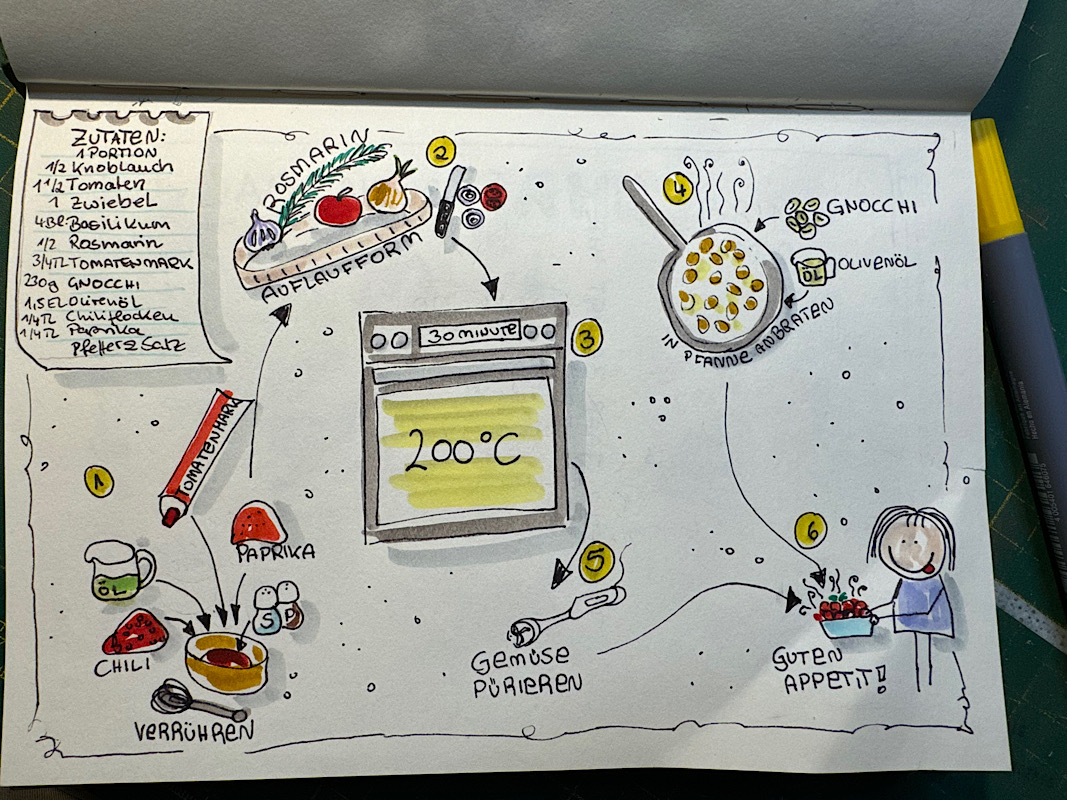 ZUTATEN:
1 PORTION
1/2 Knoblauch
1 1/2 Tomaten
1 ZwiebEL
4Bl. Basilikum
1/2 Rosmarin
3/4TL TOMATENMARK
230g GNOCCHI
1,5EL Olivenöl
1/4TL Chiliflocken
1/4TL Paprika
Pfeffer & Salz
1
TOMATENMARK
PAPRIKA
ÖL
S
P
CHILI
VERRÜHREN
2
ROSMARIN
AUFLAUFFORM
3
30 MINUTE
200°C
4
GNOCCHI
ÖL
OLIVENÖL
IN PFANNE ANBRATEN
5
GEMÜSE
PÜRIEREN
6
GUTEN
APPETIT!